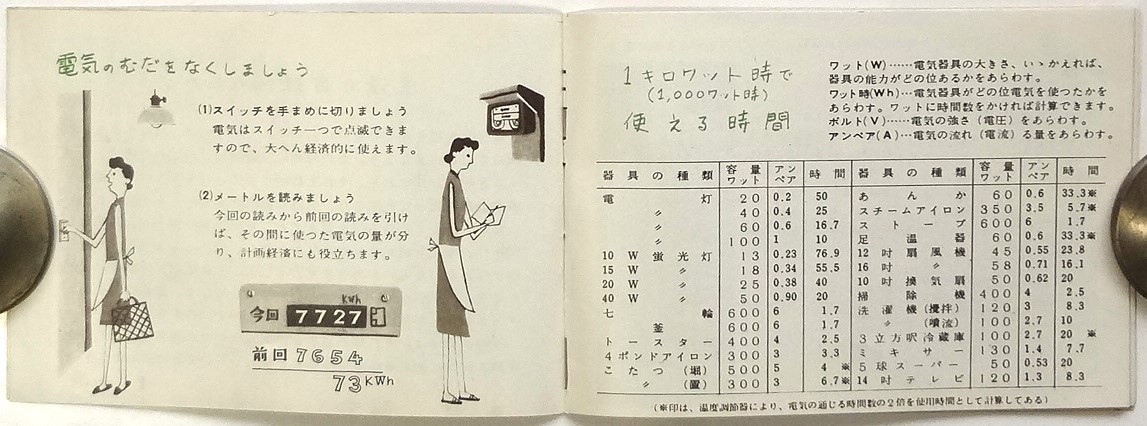 電気のむだをなくしましょう
(1)スイッチを手まめに切りましょう
電気はスイッチ一つで点滅できま
すので、大へん経済的に使えます。
(2)メートルを読みましょう
今回の読みから前回の読みを引け
ば、その間に使った電気の量が分
り、計画経済にも役立ちます。
KWh
今回 7727
前回 7654
73KWh
1キロワット時で
(1,000ワット時)
使える時間
ワット(W)……電気器具の大きさ、いゝかえれば、
器具の能力がどの位あるかをあらわす。
ワット時(Wh)…電気器具がどの位電気を使ったかを
あらわす。ワットに時間数をかければ計算できます。
ボルト(V)……電気の強さ(電圧)をあらわす。
アンペア(A)…電気の流れ(電流)る量をあらわす。
器具の種類 容量ワット アンペア 時間 器具の種類 容量ワット アンペア 時間
電灯 20 0.2 50 あんか 60 0.6 33.3※
〃 40 0.4 25 スチームアイロン 350 3.5 5.7※
〃 60 0.6 16.7 ストーブ 600 6 1.7
〃 100 1 10 足温器 60 0.6 33.3※
10W蛍光灯 13 0.23 76.9 12吋扇風機 45 0.55 23.8
15W 〃 18 0.34 55.5 16吋 〃 58 0.71 16.1
20W 〃 25 0.38 40 10吋換気扇 50 0.62 20
40W 〃 50 0.90 20 掃除機 400 4 2.5
七輪 600 6 1.7 洗濯機(攪拌) 120 3 8.3
〃釜 600 6 1.7 〃(噴流) 100 2.7 10
トースター 400 4 2.5 3立方呎冷蔵庫 100 2.7 20※
4ポンドアイロン 300 3 3.3 ミキサー 130 1.4 7.7
こたつ(堀) 500 5 4※ 5球スーパー 50 0.53 20
〃(置) 300 3 6.7※ 14吋テレビ 120 1.3 8.3
(※印は、温度調節器により、電気の通じる時間数の2倍を使用時間として計算してある)